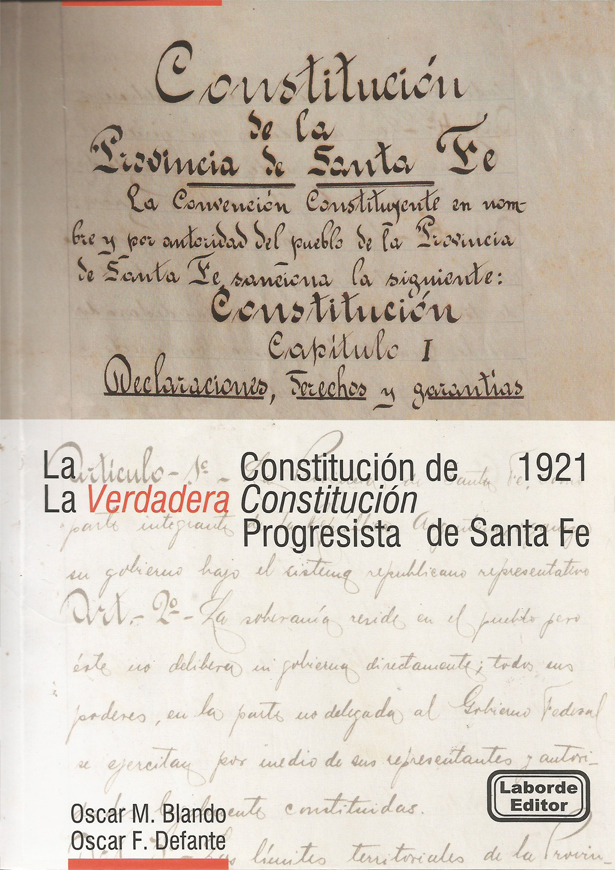 Constitución
de la
Provincia de Santa Fe
La Convención Constituyente en nom-
bre y por autoridad del pueblo de la Provincia
de Santa Fe, sanciona la siguiente:
Constitución
Capítulo I
Declaraciones, derechos y garantías
La Constitución de 1921
La Verdadera Constitución
Progresista de Santa Fe
Artículo - 1º - La de Santa Fe, como
parte integrante
su gobierno bajo el sistema republicano representativo
Art. - 2º - La soberanía reside en el pueblo pero
éste no delibera ni gobierna directamente; todos sus
poderes, en la parte no delegada al Gobierno Federal
se ejercitan por medio de sus representantes y autori-
legalmente constituidas.
Laborde
Editor
Oscar M. Blando
Oscar F. Defante
Los límites territoriales de la Provin-